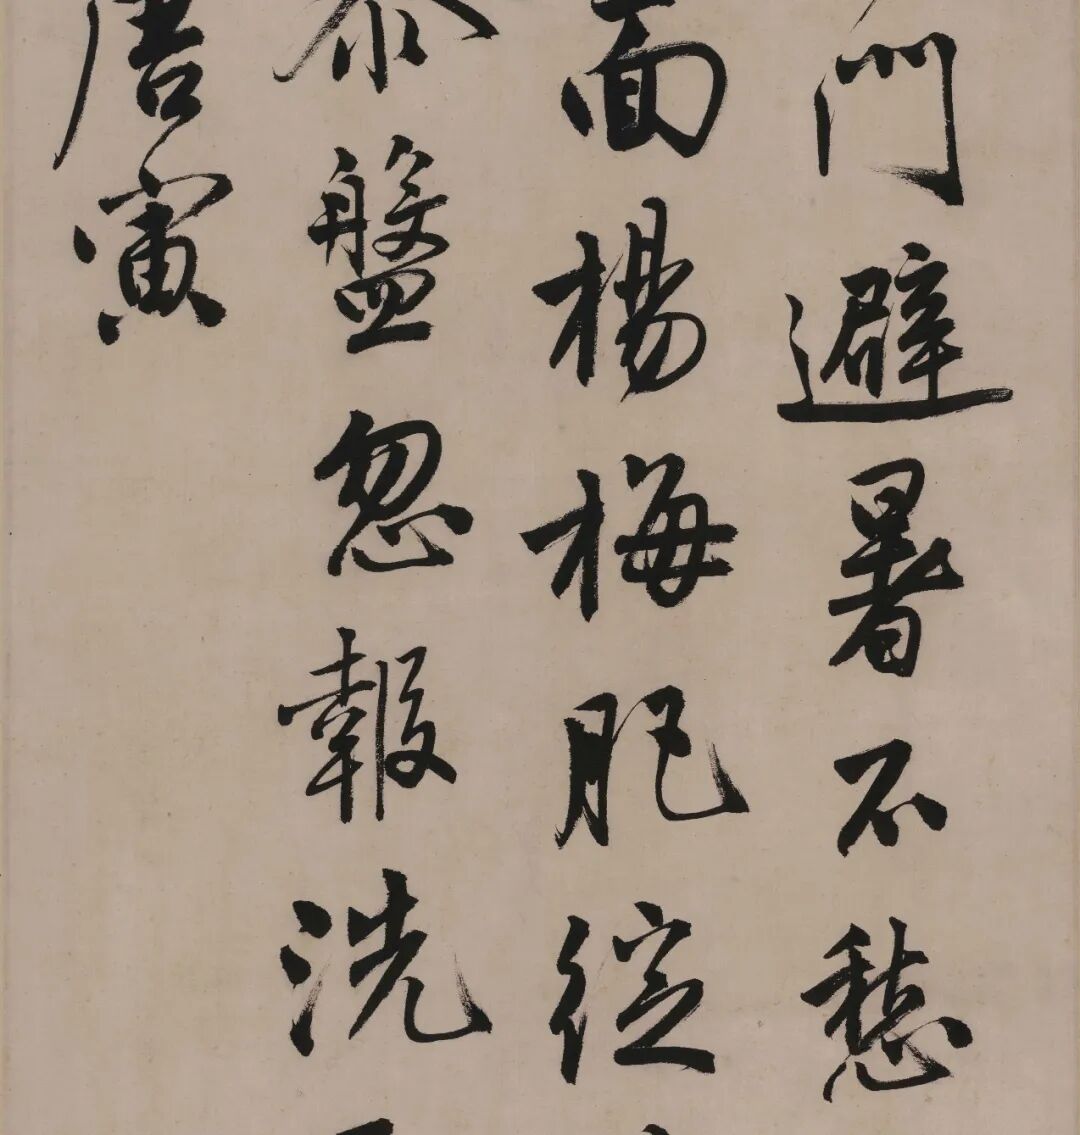 門避暑不愁
面楊梅肥綻
盤忽報洗
唐寅